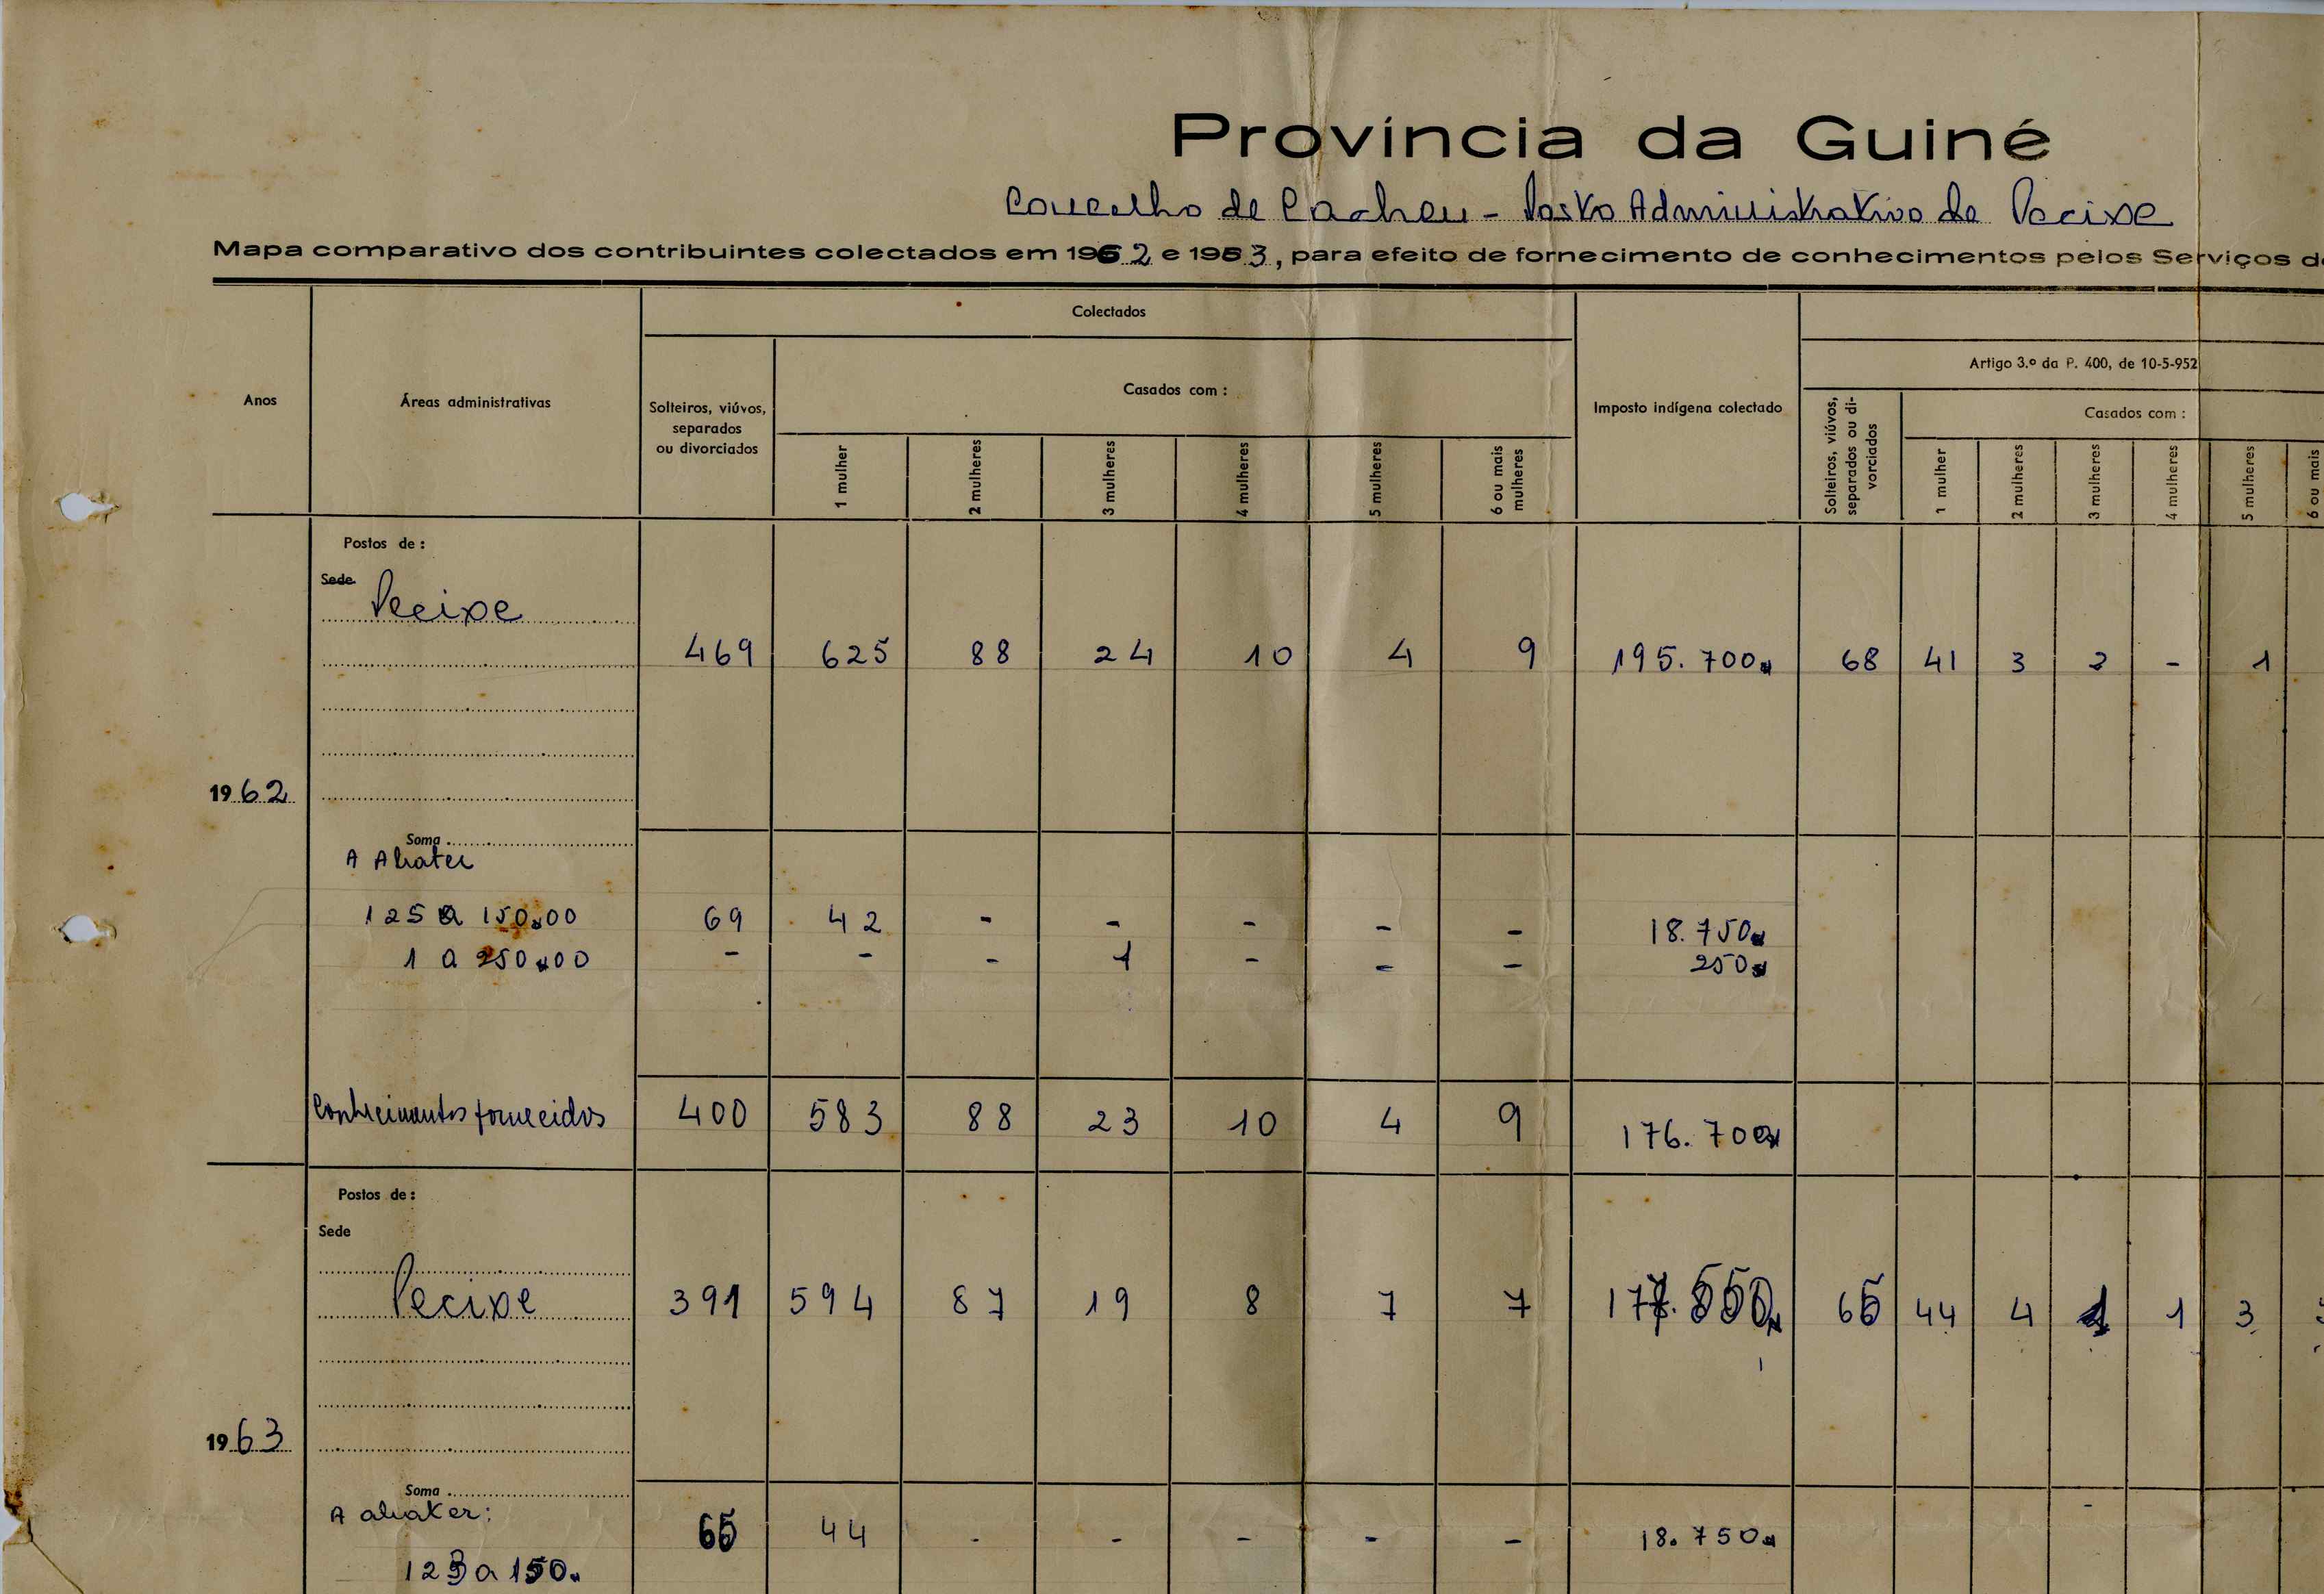 Província da Guiné
Concelho de Cacheu - Posto Administrativo de Pecixe
Mapa comparativo dos contribuintes colectados em 1962 e 1963, para efeito de fornecimento de conhecimentos pelos Serviços d
Anos
Áreas administrativas
Colectados
Solteiros, viúvos, separados ou divorciados
Casados com :
1 mulher
2 mulheres
3 mulheres
4 mulheres
5 mulheres
6 ou mais mulheres
Imposto indígena colectado
Artigo 3.º da P. 400, de 10-5-952
Solteiros, viúvos, separados ou divorciados
Casados com :
1 mulher
2 mulheres
3 mulheres
4 mulheres
5 mulheres
6 ou mais
Postos de :
Sede
Pecixe
469 625 88 24 10 4 9 195.700$ 68 41 3 2 - 1
1962
Soma
A Abater
125 a 150$00 69 42 - - - - - 18.750$
1 a 250$00 - - - 1 - - - 250$
Conhecimentos fornecidos 400 583 88 23 10 4 9 176.700$
Postos de :
Sede
Pecixe 391 594 87 19 8 7 7 65 44 4 1 1 3
1963
Soma
A abater:
65 44 - - - - - 18.750$
a 150$